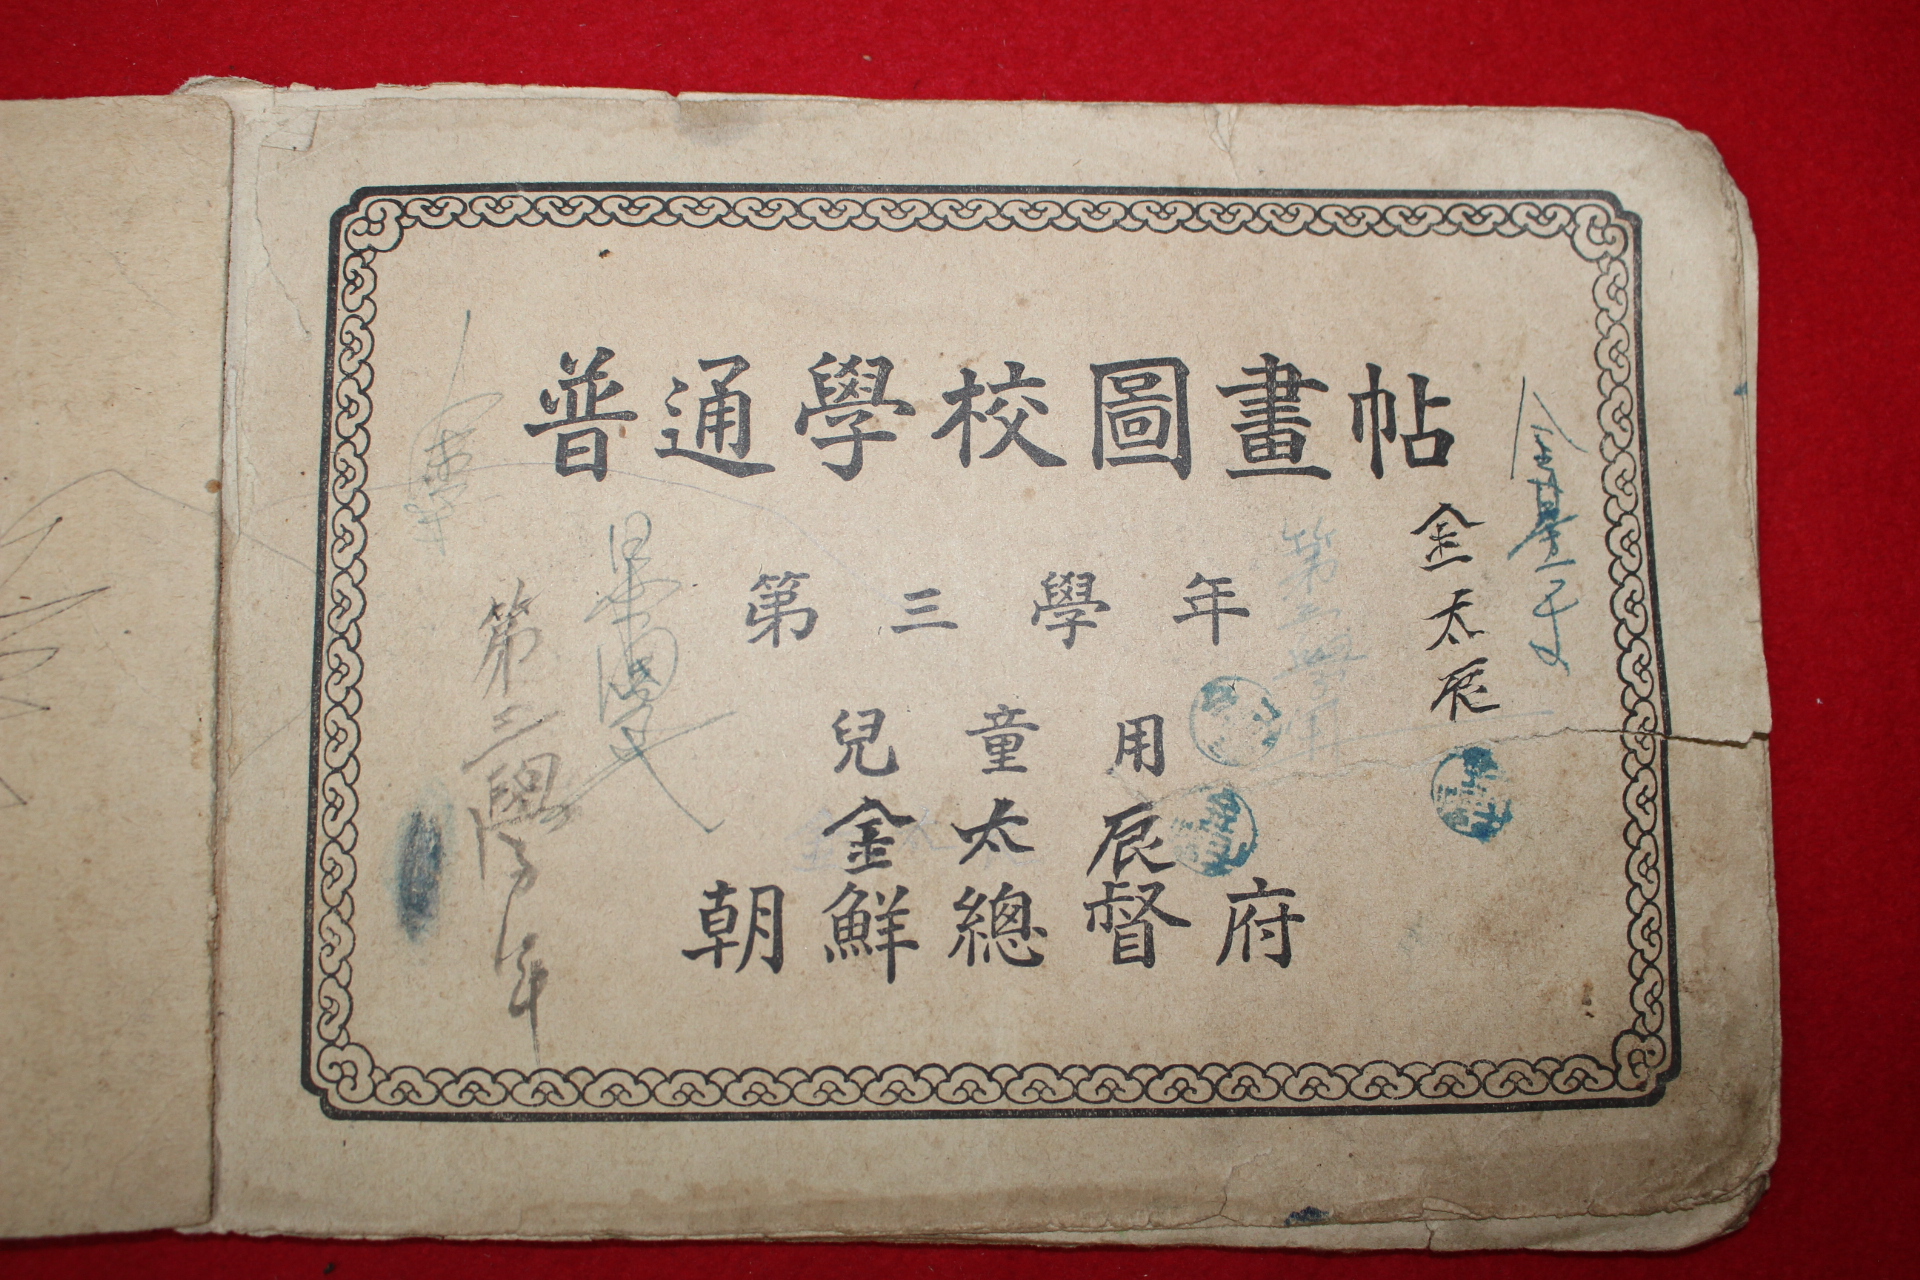 普通學校圖畫帖
第三學年
兒童用
金太辰
朝鮮總督府
金太辰
第三學年
第三學年